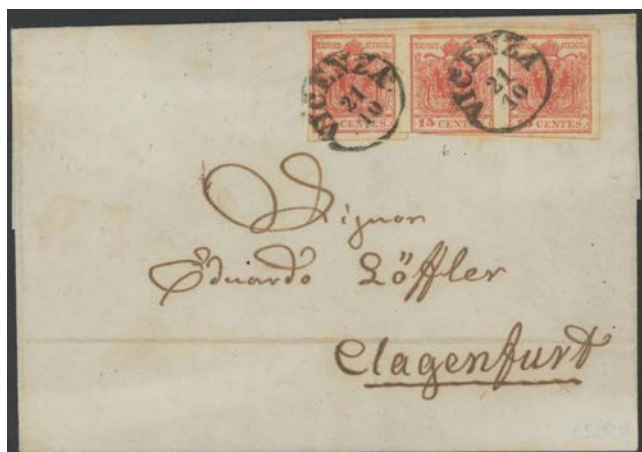 VICENZA.
21
10
15 CENTES.
VICENZA.
21
10
CENTES.
Signor
Eduardo Löffler
Clagenfurt